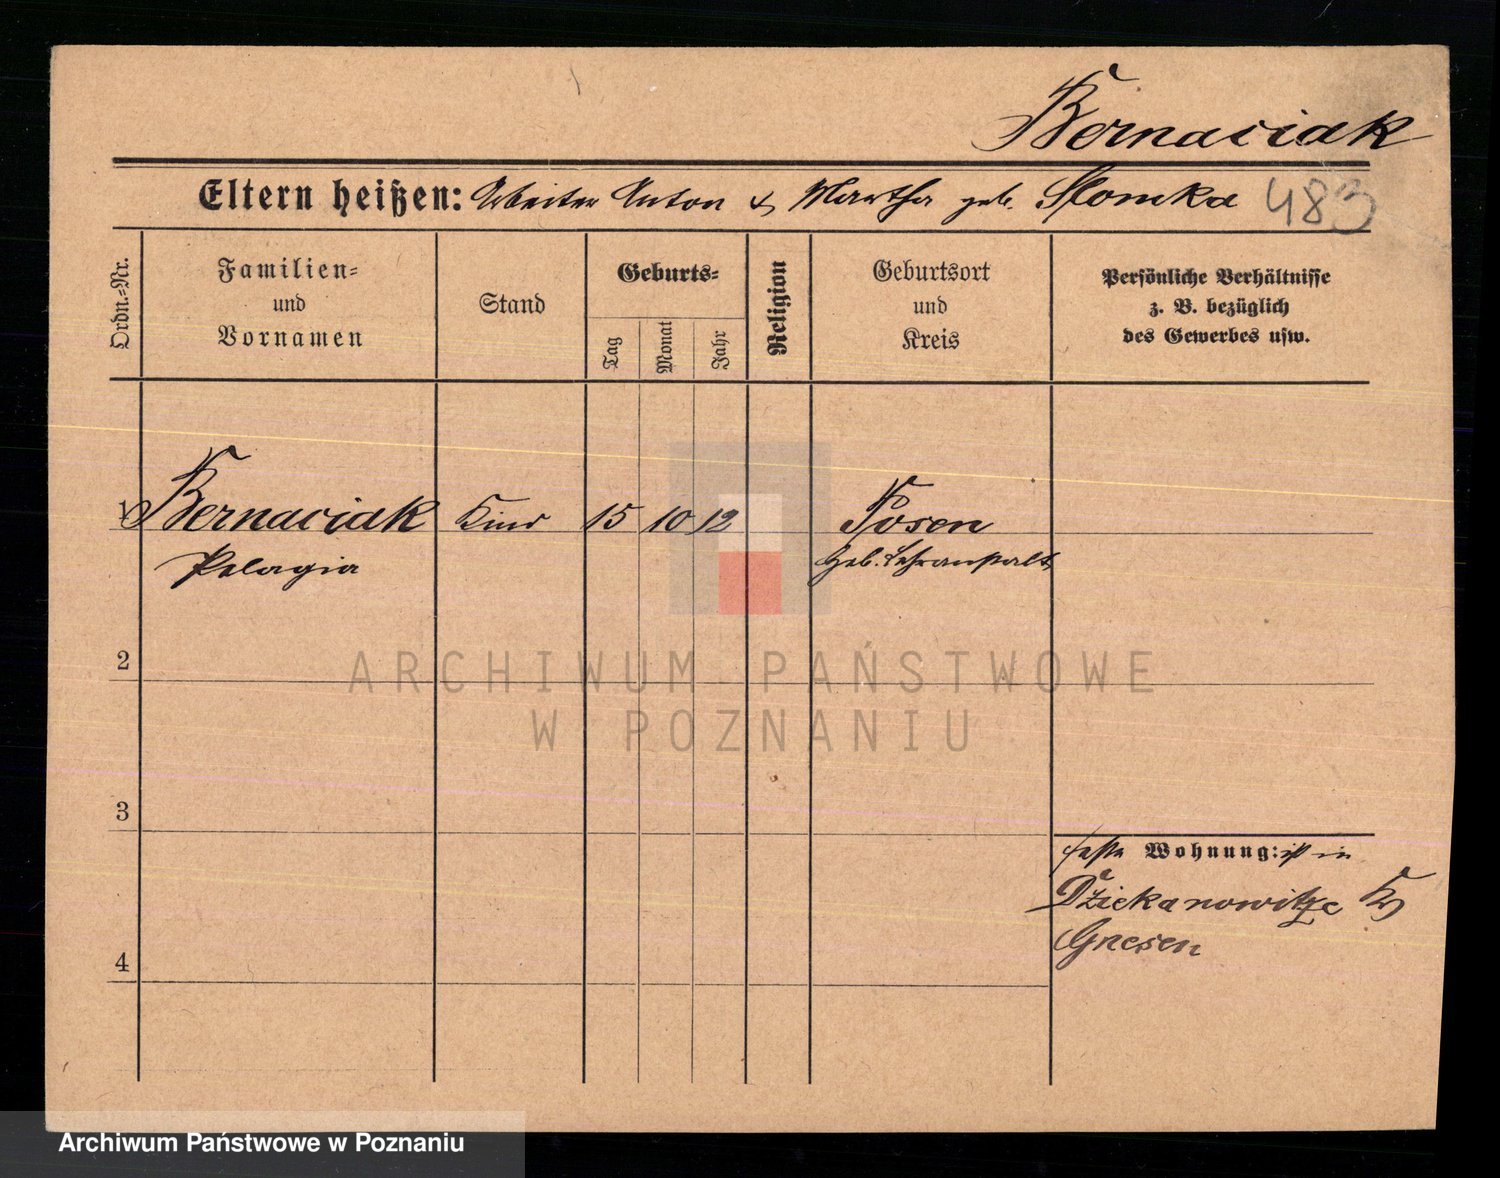 Bernaciak
Eltern heißen: Arbeiter Anton & Martha geb. Slomka 483
Ordn.-Nr.
Familien-
und
Vornamen
Stand
Geburts-
Tag
Monat
Jahr
Religion
Geburtsort
und
Kreis
Persönliche Verhältnisse
z. B. bezüglich
des Gewerbes usw.
1 Bernaciak Kind 15 10 12 Posen
Pelagia Heb. Lehranstalt
2
ARCHIWUM PAŃSTWOWE
W POZNANIU
3
feste Wohnung: ist in
Dziekanowitze Kr
Gnesen
4
Archiwum Państwowe w Poznaniu